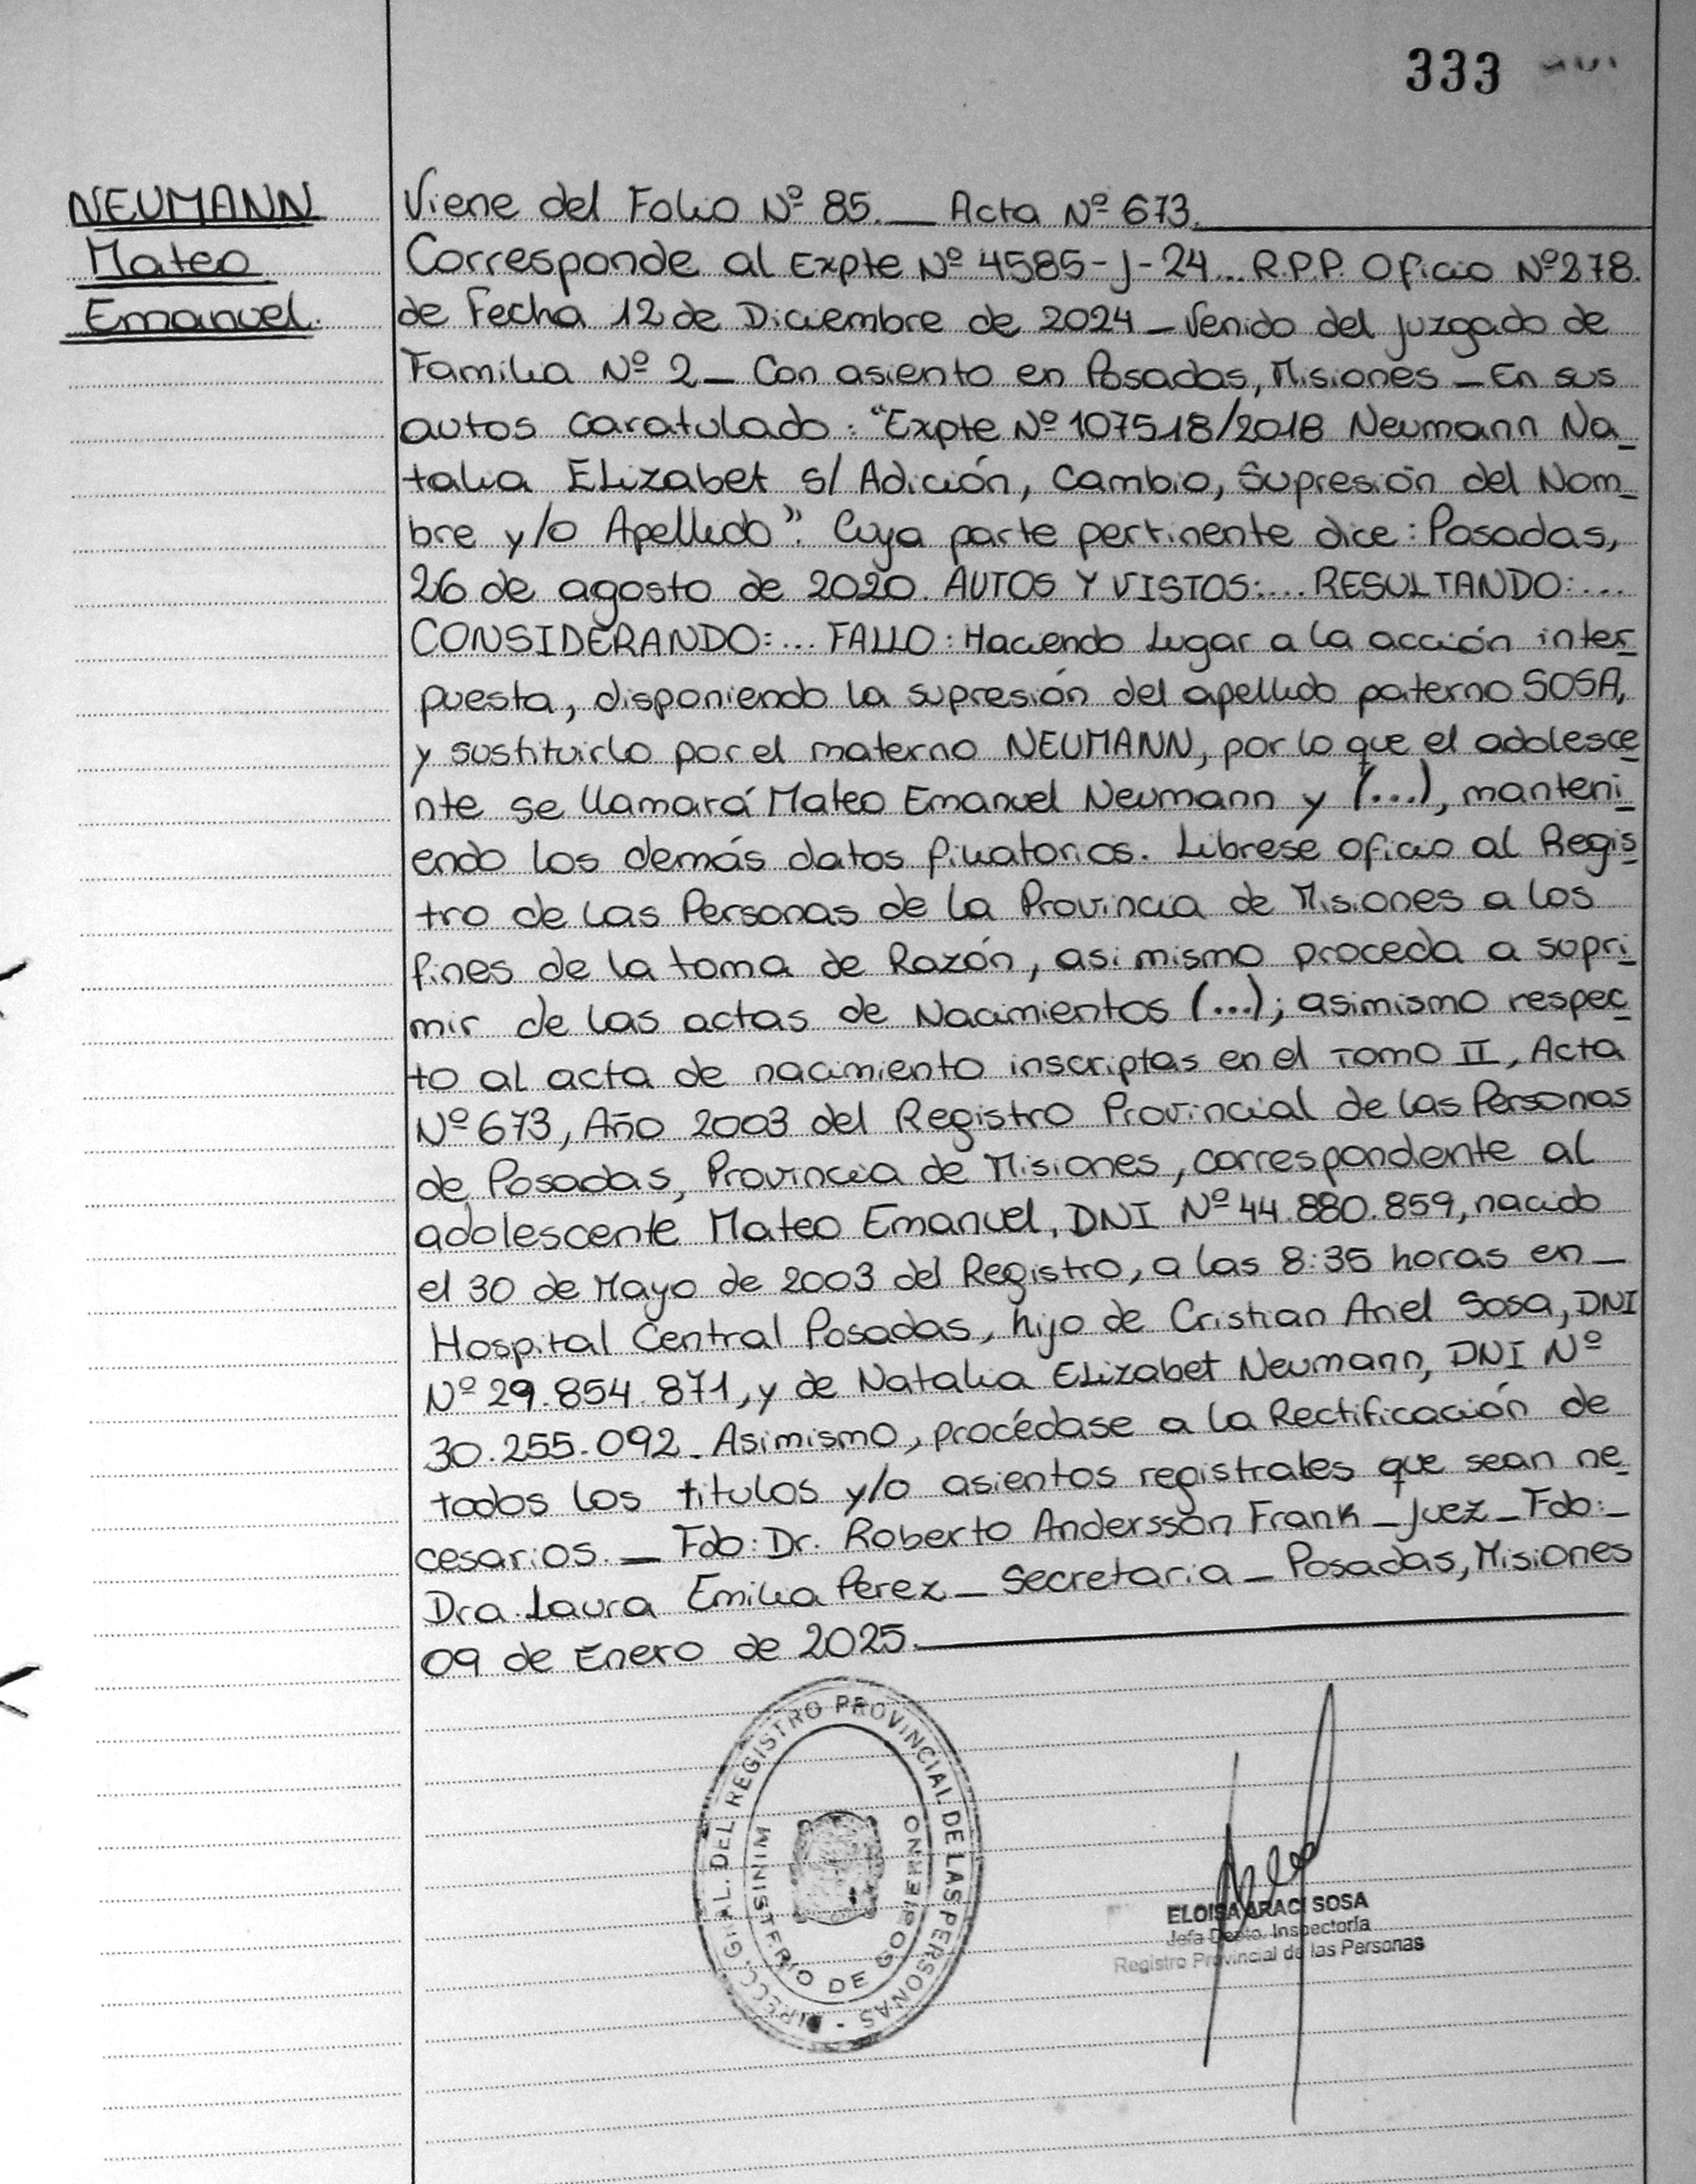 333
NEUMANN
Mateo
Emanuel.
Viene del Folio Nº 85. _ Acta Nº 673.
Corresponde al Expte Nº 4585-J-24... R.P.P. Oficio Nº 278.
de Fecha 12 de Diciembre de 2024 _ Venido del Juzgado de
Familia Nº 2 _ Con asiento en Posadas, Misiones _ En sus
autos caratulado: "Expte Nº 107518/2018 Neumann Na_
talia Elizabet s/ Adición, Cambio, Supresión del Nom_
bre y/o Apellido". Cuya parte pertinente dice: Posadas,
26 de agosto de 2020. AUTOS Y VISTOS:... RESULTANDO:...
CONSIDERANDO:... FALLO: Haciendo Lugar a la acción inter_
puesta, disponiendo la supresión del apellido paterno SOSA,
y sustituirlo por el materno NEUMANN, por lo que el adolesce_
nte se llamará Mateo Emanuel Neumann y (...), manteni_
endo los demás datos filiatorios. Líbrese oficio al Regis_
tro de las Personas de la Provincia de Misiones a los
fines de la toma de Razón, asi mismo proceda a supri_
mir de las actas de Nacimientos (...); asimismo respec_
to al acta de nacimiento inscriptas en el Tomo II, Acta
Nº 673, Año 2003 del Registro Provincial de las Personas
de Posadas, Provincia de Misiones, correspondente al
adolescente Mateo Emanuel, DNI Nº 44.880.859, nacido
el 30 de Mayo de 2003 del Registro, a las 8:35 horas en _
Hospital Central Posadas, hijo de Cristian Ariel Sosa, DNI
Nº 29.854.871, y de Natalia Elizabet Neumann, DNI Nº
30.255.092. Asimismo, procédase a la Rectificación de
todos los titulos y/o asientos registrales que sean ne_
cesarios. _ Fdo: Dr. Roberto Andersson Frank _ Juez _ Fdo: _
Dra. Laura Emilia Perez _ Secretaria _ Posadas, Misiones
09 de Enero de 2025.
DIRECC. GRAL. DEL REGISTRO PROVINCIAL DE LAS PERSONAS -
MINISTERIO DE GOBIERNO
ELOISA ARACI SOSA
Jefa Depto. Inspectoría
Registro Provincial de las Personas